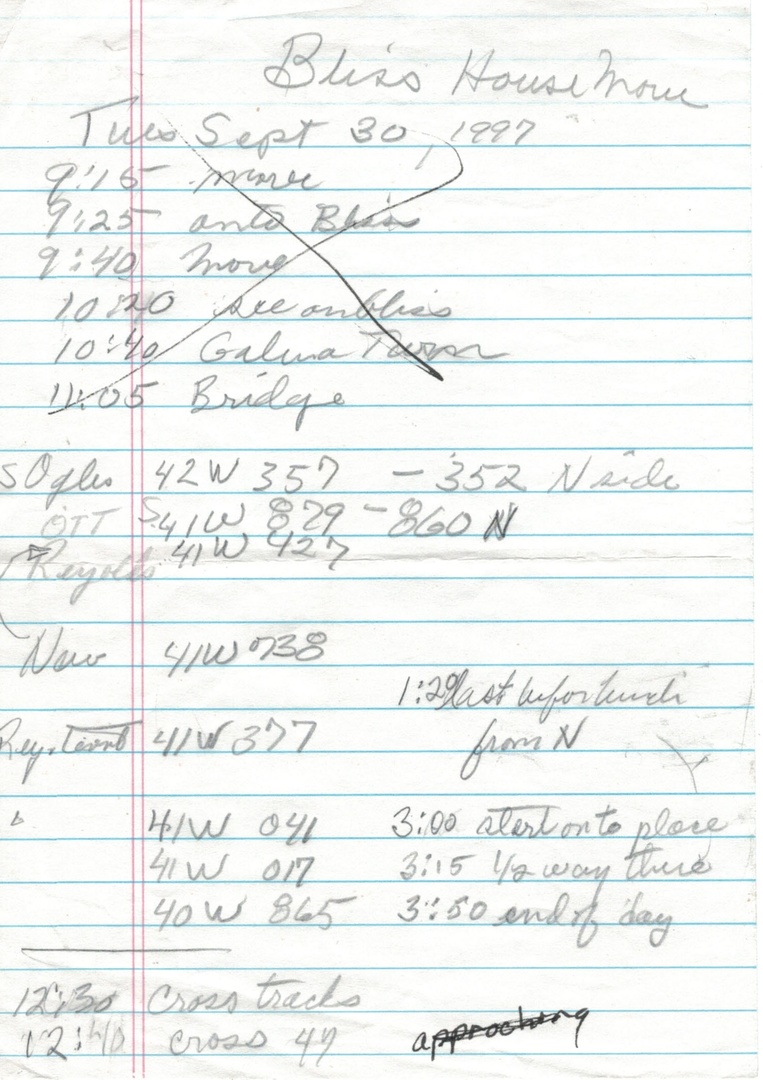 Bliss House Move
Tues Sept 30, 1997
9:15 move
9:25 onto Bliss
9:40 move
10:20 see on bliss
10:40 Galena Turn
11:05 Bridge
S Ogles 42W 357 - 352 N side
OTT S 41W 829 - 860 N
Reyolds 41W 427
New 41W 738
1:20 last before lunch
Rey. 41W 377 from N
41W 041 3:00 start onto place
41W 017 3:15 1/2 way there
40W 865 3:50 end of day
12:30 Cross tracks
12:40 cross 47 approching